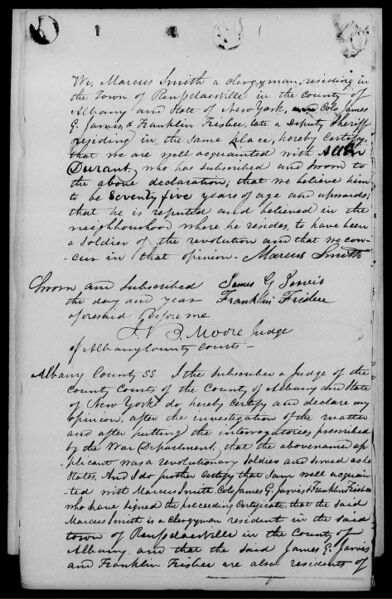 We, Marcus Smith a clergyman, residing in
the town of Rensselaerville in the County of
Albany and State of New York, and Cols James
G. Jarvis, & Franklin Frisbee, late a Deputy Sheriff
residing in the same place, hereby certify,
that we are well acquainted with Allen
Durant, who has subscribed and sworn to
the above declaration; that we believe him
to be Seventy five years of age and upwards;
that he is reputed and believed in the
neighbourhood where he resides, to have been
a Soldier of the revolution and that we con-
cur in that opinion. Marcus Smith
Sworn and Subscribed James G Jarvis
the day and year Franklin Frisbee
aforesaid before me
Moore Judge
of Albany County courts
Albany County SS. I the Subscriber a Judge of the
County Courts of the County of Albany and State
of New York do hereby certify and declare my
opinion, after the investigation of the matter
and after putting the interrogatories prescribed
by the War Department, that the above name ap
plicant was a revolutionary Soldier and Served as he
States. And I do further Certify that I am well acquain-
ted with Marcus Smith Cols James G. Jarvis Franklin Frisbee
who have signed the preceding Certificate, that the said
Marcus Smith is a Clergyman resident in the said
town of Rensselaerville in the County of
Albany and that the said James G. Jarvis
and Franklin Frisbee are also residents of